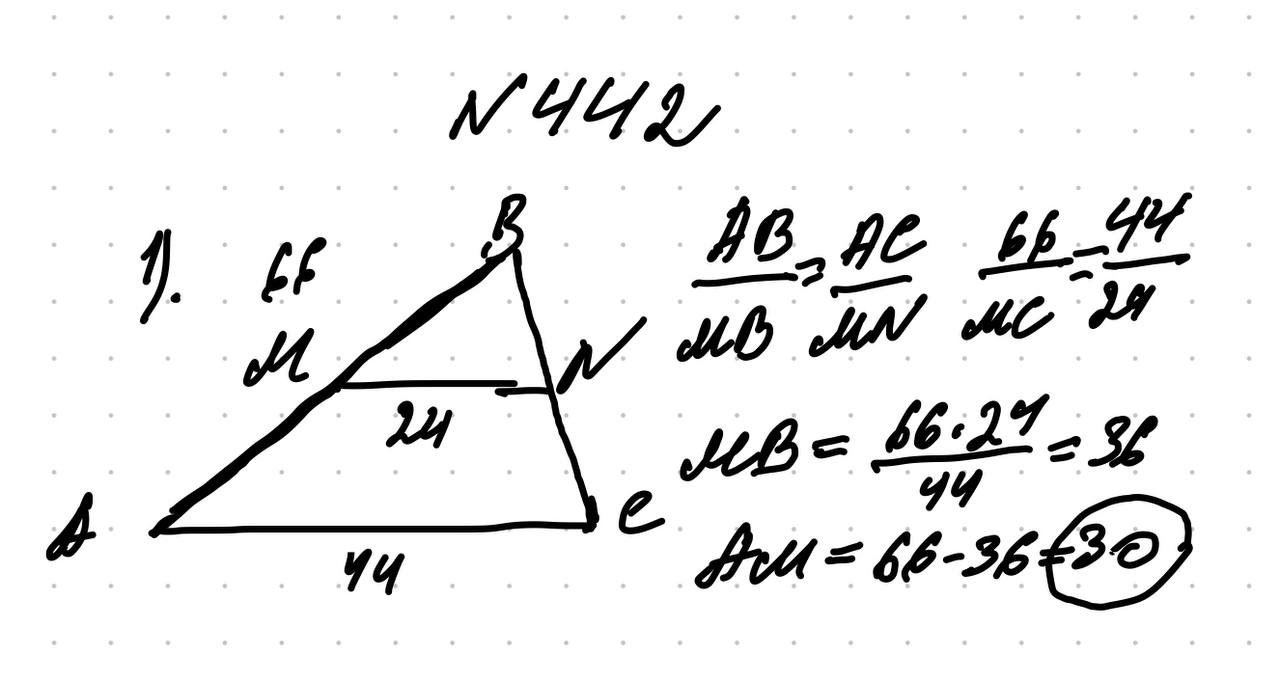 N442
1).
66
B
M
N
24
A
C
44
AB/MB = AC/MN 66/MC = 44/24
MB = 66·24/44 = 36
AM = 66-36=30